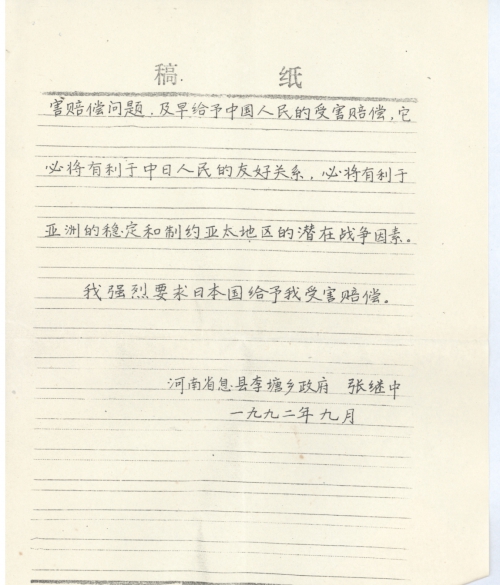 稿 纸
害赔偿问题，及早给予中国人民的受害赔偿，它
必将有利于中日人民的友好关系，必将有利于
亚洲的稳定和制约亚太地区的潜在战争因素。
我强烈要求日本国给予我受害赔偿。
河南省息县李塘乡政府 张继中
一九九二年九月